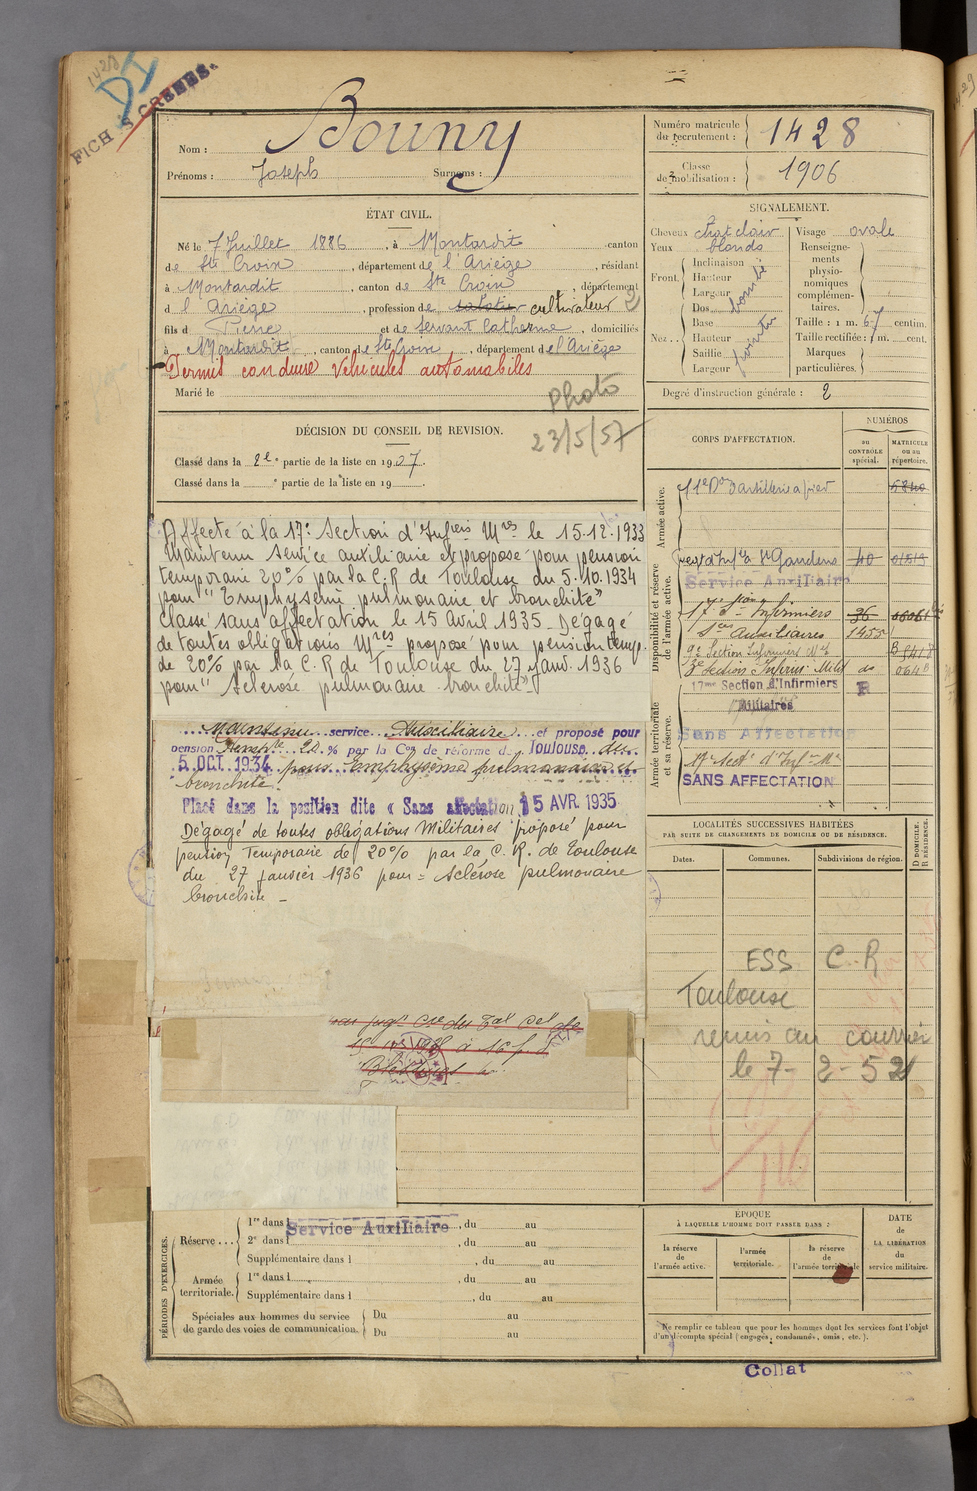 1428
DI
FICH S CRENES.
Nom : Bouny
Prénoms : Joseph Surnoms :
Numéro matricule du recrutement : 1428
Classe de mobilisation : 1906
ÉTAT CIVIL.
Né le 7 Juillet 1886, à Montardit canton
de Ste Croix, département de l'Ariège, résidant
à Montardit, canton de Ste Croix, département
d l'Ariège, profession de cultivateur 2
fils d Pierre et de Servant Catherine, domiciliés
à Montardit, canton de Ste Croix, département de l'Ariège
Permis conduire Véhicules automobiles
Marié le
Photo
23/5/57
SIGNALEMENT.
Cheveux chat clair
Yeux blonds
Front. Inclinaison
Hauteur
Largeur
bombé
Nez. Dos
Base
Hauteur
Saillie
Largeur
pointu
Visage ovale
Renseignements physionomiques complémentaires.
Taille : 1 m. 67 centim.
Taille rectifiée : 1 m. cent.
Marques particulières.
Degré d'instruction générale : 2
DÉCISION DU CONSEIL DE REVISION.
Classé dans la 2e partie de la liste en 1907.
Classé dans la e partie de la liste en 19
CORPS D'AFFECTATION.
NUMÉROS
au CONTRÔLE spécial.
MATRICULE ou au répertoire.
Armée active.
d'artillerie à pied
Disponibilité et réserve de l'armée active.
Regt d'Infie St Gaudens 40
Service Auxiliaire
17e Son Infirmiers 36
Sces Auxiliaires 1455
9e Section Infirmiers Mres
3e Section Infirm. Milit do 064B
17me Section d'Infirmiers Militaires R
Armée territoriale et sa réserve.
Sans Affectation
17e Sect° d'Infres Mres
SANS AFFECTATION
Affecté à la 17e Section d'Infiers Mres le 15.12.1933
Maintenu service auxiliaire et proposé pour pension
temporaire 20% par la C.R de Toulouse du 5.10.1934
pour "Emphysème pulmonaire et bronchite"
Classé sans affectation le 15 Avril 1935. Dégagé
de toutes obligations Mres proposé pour pension temp.
de 20% par la C.R de Toulouse du 27 Janv. 1936
pour "Sclérose pulmonaire bronchite"
Maintenu service Auxiliaire et proposé pour
pension Temp re 20 % par la Con de réforme de Toulouse du
5 OCT. 1934 pour Emphysème pulmonaire et
bronchite.
Placé dans la position dite « Sans affectation » 15 AVR. 1935
Dégagé de toutes obligations Militaires proposé pour
pension Temporaire de 20% par la C. R. de Toulouse
du 27 janvier 1936 pour = Sclérose pulmonaire
bronchite -
LOCALITÉS SUCCESSIVES HABITÉES
PAR SUITE DE CHANGEMENTS DE DOMICILE OU DE RÉSIDENCE.
Dates. Communes. Subdivisions de région. D DOMICILE. R RÉSIDENCE.
ESS C-R
Toulouse
remis au courrier
le 7-2-52
PÉRIODES D'EXERCICES.
Réserve... 1er dans l Service Auxiliaire, du au
2e dans l, du au
Supplémentaire dans l, du au
Armée territoriale. 1re dans l, du au
Supplémentaire dans l, du au
Spéciales aux hommes du service de garde des voies de communication. Du au
Du au
ÉPOQUE
À LAQUELLE L'HOMME DOIT PASSER DANS :
la réserve de l'armée active.
l'armée territoriale.
la réserve de l'armée territoriale
DATE de LA LIBÉRATION du service militaire.
Ne remplir ce tableau que pour les hommes dont les services font l'objet
d'un décompte spécial (engagés, condamnés, omis, etc.).
Collat